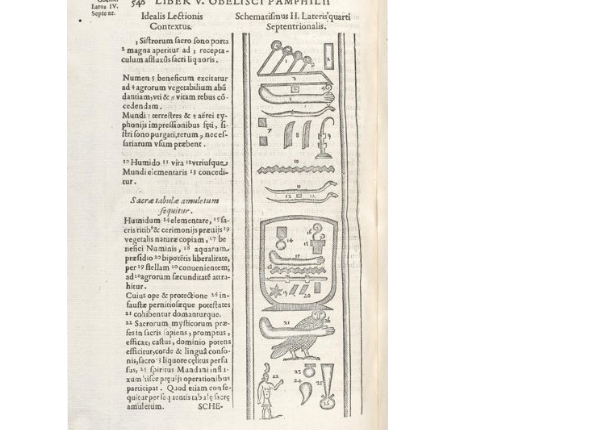 540 LIBER V. OBELISCI PAMPHILII
Latus IV.
Septent.
Idealis Lectionis
Contextus.
Schematismus II. Lateris quarti
Septentrionalis.
, Sistrorum sacro sono porta
² magna aperitur ad ; recepta-
culum
Numen 5 beneficum excitatur
ad 4 agrorum vegetabilium abū
dantiam, vti & vitam rebus cō-
cedendam.
Mundi terrestres & aërei ty-
phonijs impressionibus
stri sono purgati, rerum, neces-
sariarum vsum præbent.
¹⁰ Humido 11 vita
Mundi elementaris 13 concedi
tur.
Sacræ tabulæ amuletum
sequitur.
Humidum 14 elementare, 15 sa-
cris ritib⁹ & cerimonijs præuijs
vegetabis naturæ copiam, 17 be
nefici Numinis, 18 aquarum,
præsidio hipotētis liberalitate,
per 19 stellam conuenientem;
ad agrorum fæcunditatē attra-
hitur.
Cuius ope & protectione in-
faustæ pernitiosæque potestates
21 cohibentur domanturque.
²² Sacrorum mysticorum præ-
ses in sacris sapiens, promptus,
efficax, castus, dominio potens
efficitur, corde & linguâ conso-
nis, sacro liquore cælitus perfu
sus, spiritus Mundani
operationibus
participat. Quod etiam conse-
quitur
amuletum. SCHE-